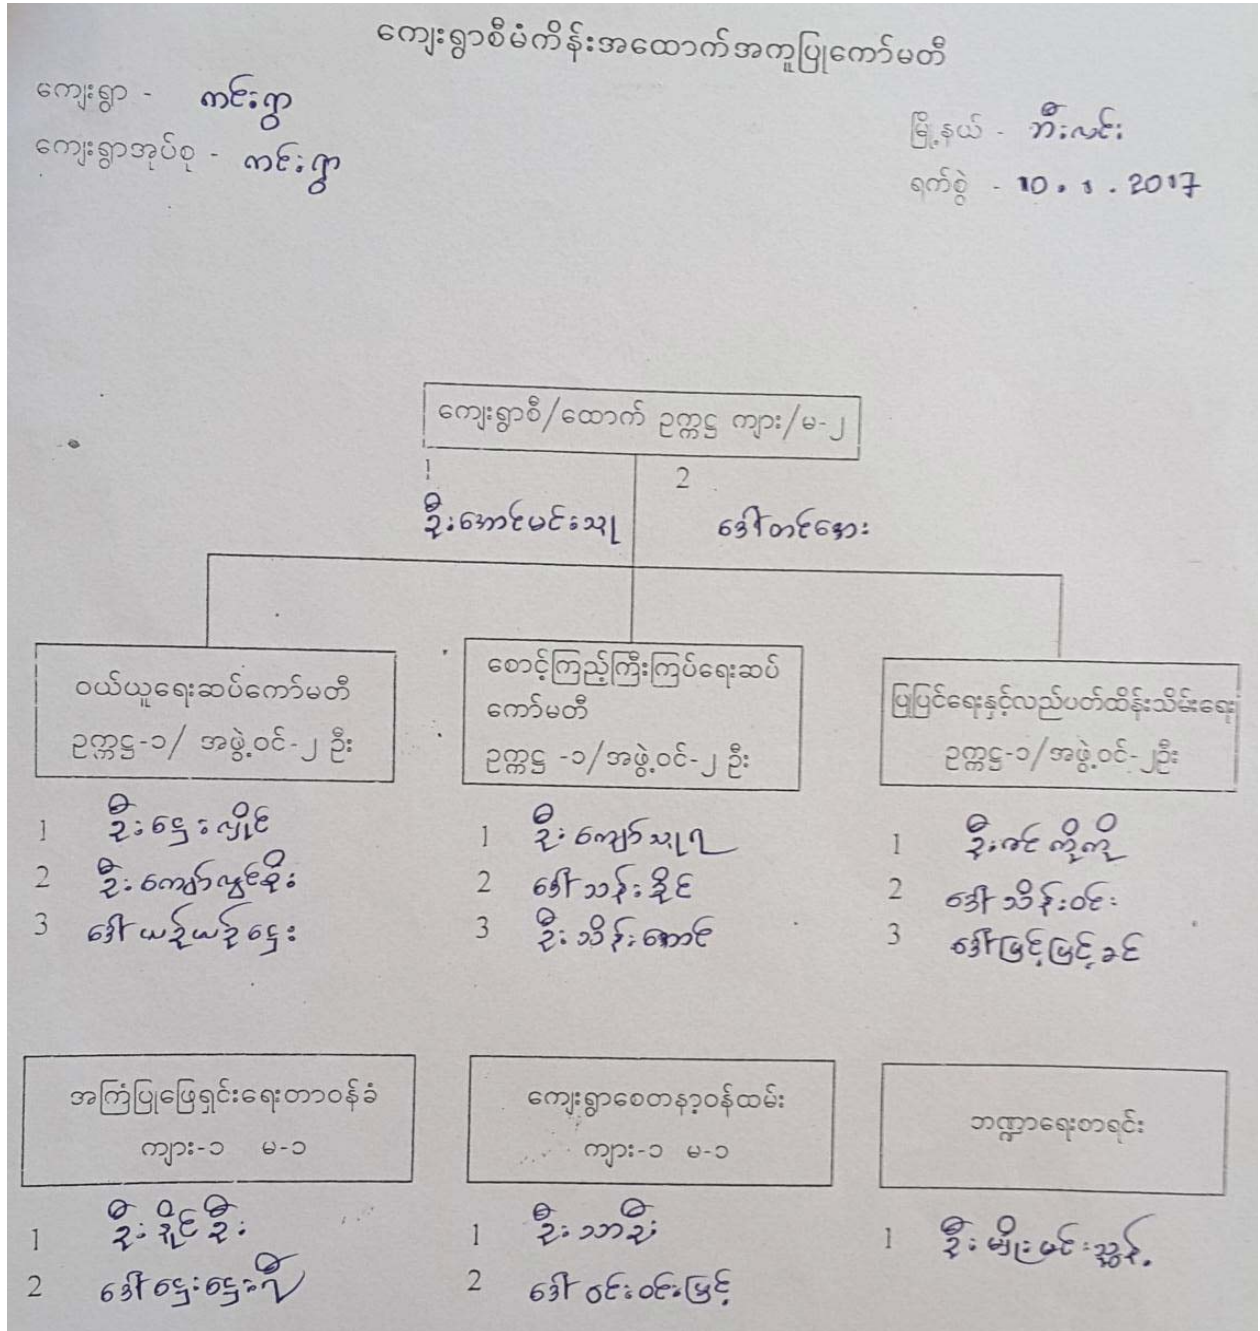 ကျေးရွာစီမံကိန်းအထောက်အကူပြုကော်မတီ
ကျေးရွာ - ကင်းရွာ
ကျေးရွာအုပ်စု - ကင်းရွာ
မြို့နယ် - ဘီးလင်း
ရက်စွဲ - 10.1.2017
ကျေးရွာစီ/ထောက် ဥက္ကဋ္ဌ ကျား/မ-၂
1 ဦးအောင်မင်းသူ
2 ဒေါ်တင်အေး
ဝယ်ယူရေးဆပ်ကော်မတီ
ဥက္ကဋ္ဌ-၁/ အဖွဲ့ဝင်-၂ ဦး
1 ဦးဌေးလှိုင်
2 ဦးကျော်လွင်စိုး
3 ဒေါ်ယဉ်ယဉ်ဌေး
စောင့်ကြည့်ကြီးကြပ်ရေးဆပ်
ကော်မတီ
ဥက္ကဋ္ဌ -၁/အဖွဲ့ဝင်-၂ ဦး
1 ဦးကျော်သူရ
2 ဒေါ်သန်းခိုင်
3 ဦးသိန်းအောင်
ပြုပြင်ရေးနှင့်လည်ပတ်ထိန်းသိမ်းရေး
ဥက္ကဋ္ဌ-၁/အဖွဲ့ဝင်-၂ဦး
1 ဦးဇင်ကိုကို
2 ဒေါ်သိန်းဝင်း
3 ဒေါ်မြင့်မြင့်ခင်
အကြံပြုဖြေရှင်းရေးတာဝန်ခံ
ကျား-၁ မ-၁
1 ဦးခိုင်ဦး
2 ဒေါ်ဌေးဌေးလှီ
ကျေးရွာစေတနာ့ဝန်ထမ်း
ကျား-၁ မ-၁
1 ဦးသာဦး
2 ဒေါ်ဝင်းဝင်းမြင့်
ဘဏ္ဍာရေးစာရင်း
1 ဦးမျိုးမင်းညွန့်